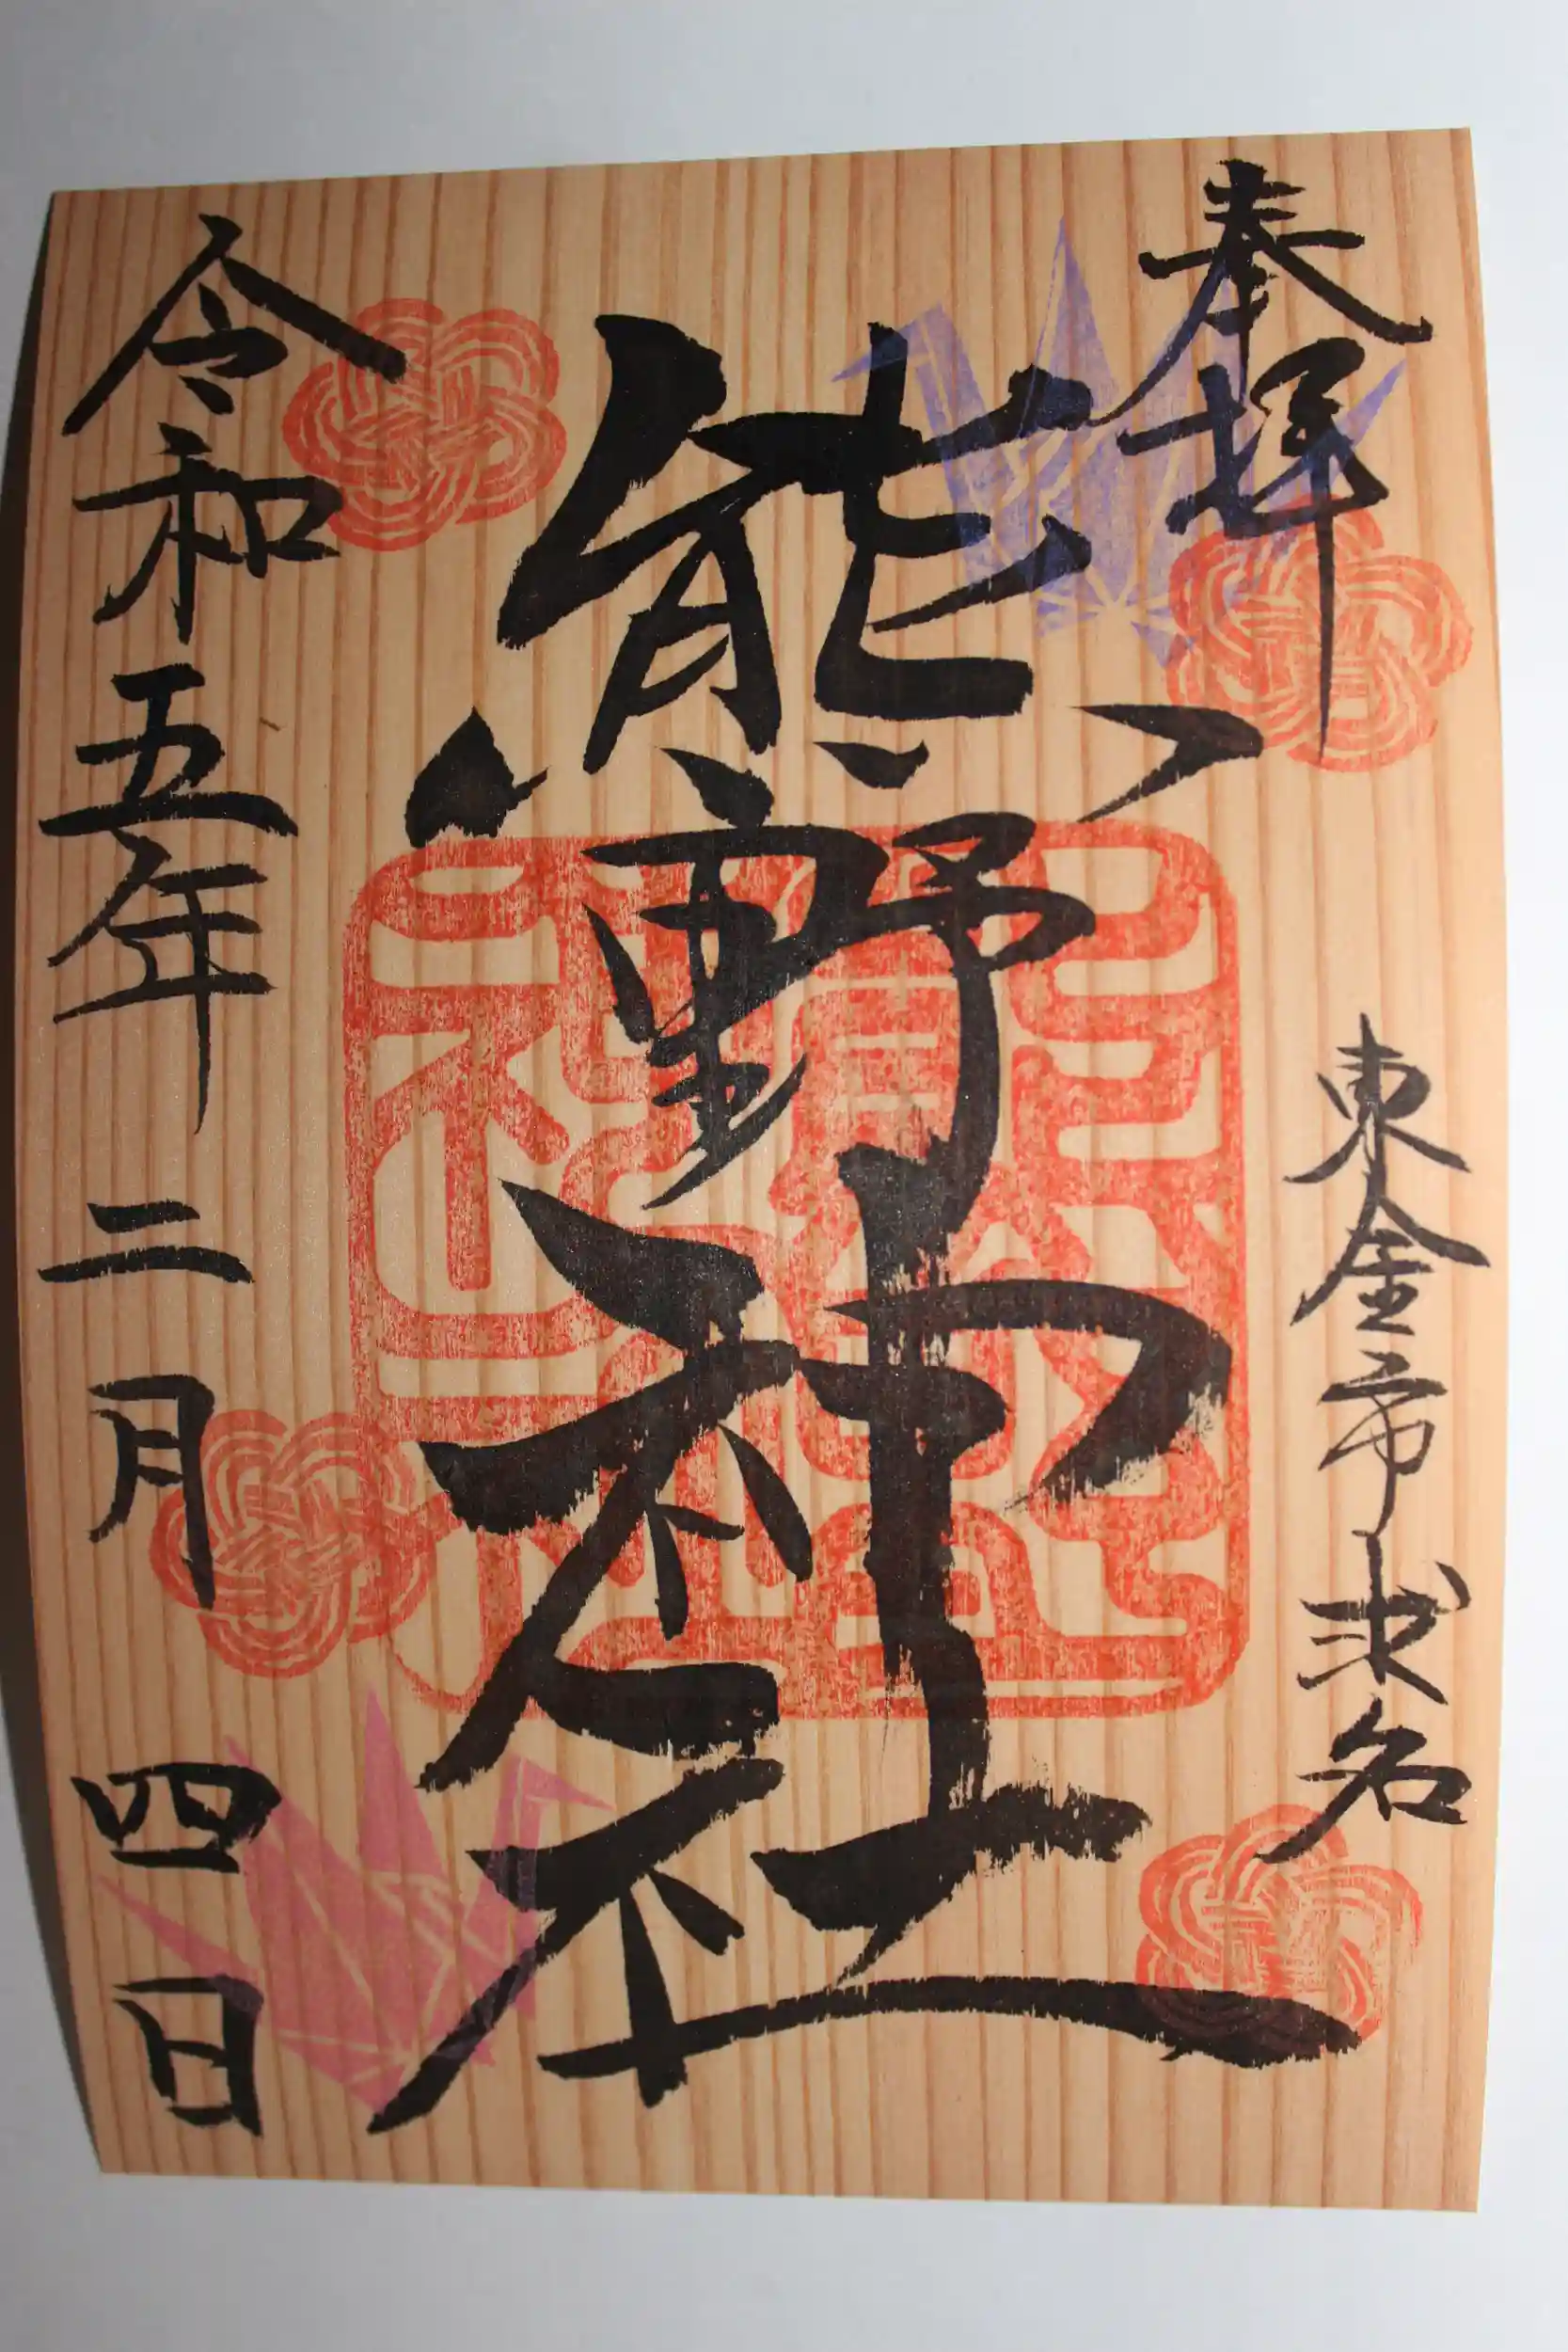 奉拝
東金市求名
熊野神社
令和五年二月四日